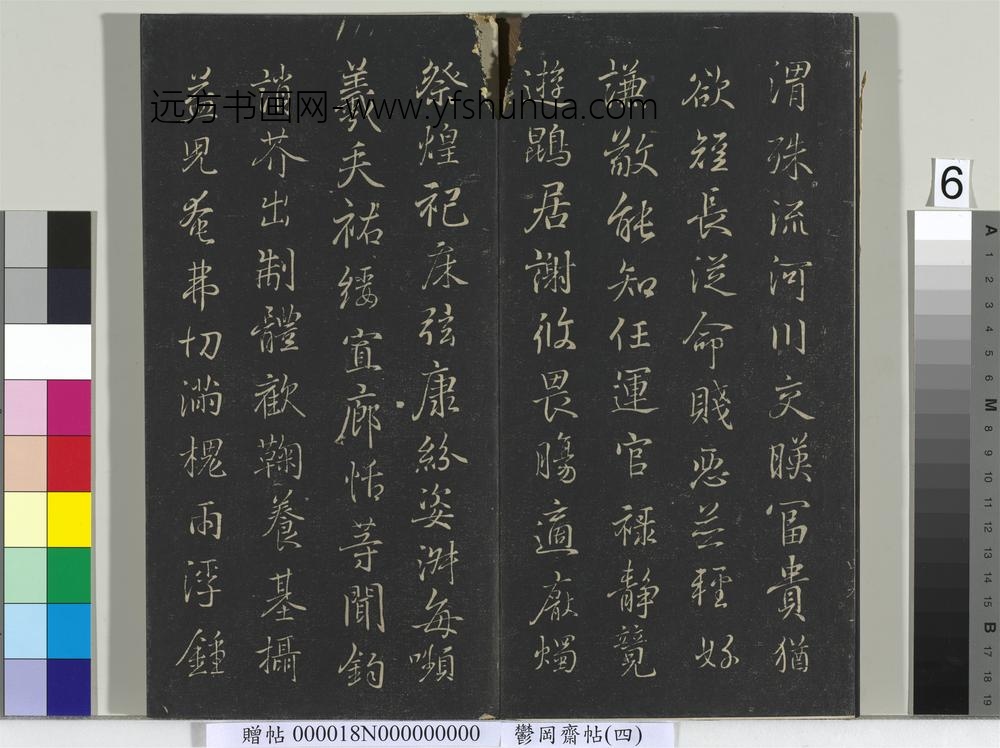 渭殊流河川交映冨貴猶
欲短長従命賤惡並輕好
謙敬能知任運官禄静競
游鵾居謝攸畏腸適厭燭
祭煌祀床弦康紛姿淑每嚬
羲矢祐綏宜廊恬等聞鈞
誚芥出制體歡鞠養基攝
兹児奄弗切滿槐雨浮鍾
远方书画网-www.yfshuhua.com
6
A
1
2
3
4
5
6
M
8
9
10
11
12
13
14
15
B
17
18
19
贈帖 000018N000000000 鬱岡齋帖(四)